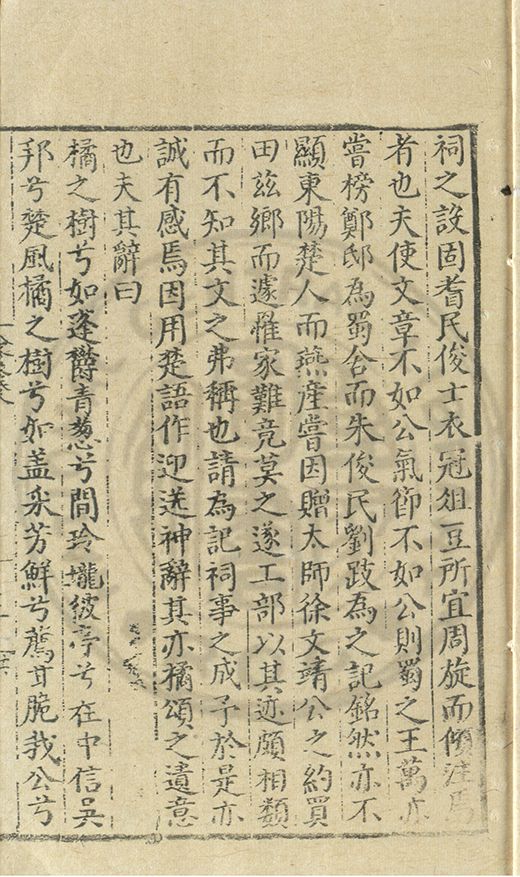 祠之設固耆民俊士衣冠俎豆所宜周旋而傾注焉
者也夫使文章不如公氣節不如公則蜀之王萬亦
嘗榜鄭邸為蜀舍而朱俊民劉跂為之記銘然亦不
顯東陽楚人而燕產嘗因贈太師徐文靖公之約買
田茲鄉而遽罹家難竟莫之遂工部以其迹頗相類
而不知其文之弗稱也請為記祠事之成予於是亦
誠有感焉因用楚語作迎送神辭其亦橘頌之遺意
也夫其辭曰
橘之樹兮如蓬欝青葱兮間玲瓏彼亭兮在中信吳
邦兮楚風橘之樹兮如盖采芳鮮兮薦甘脆我公兮